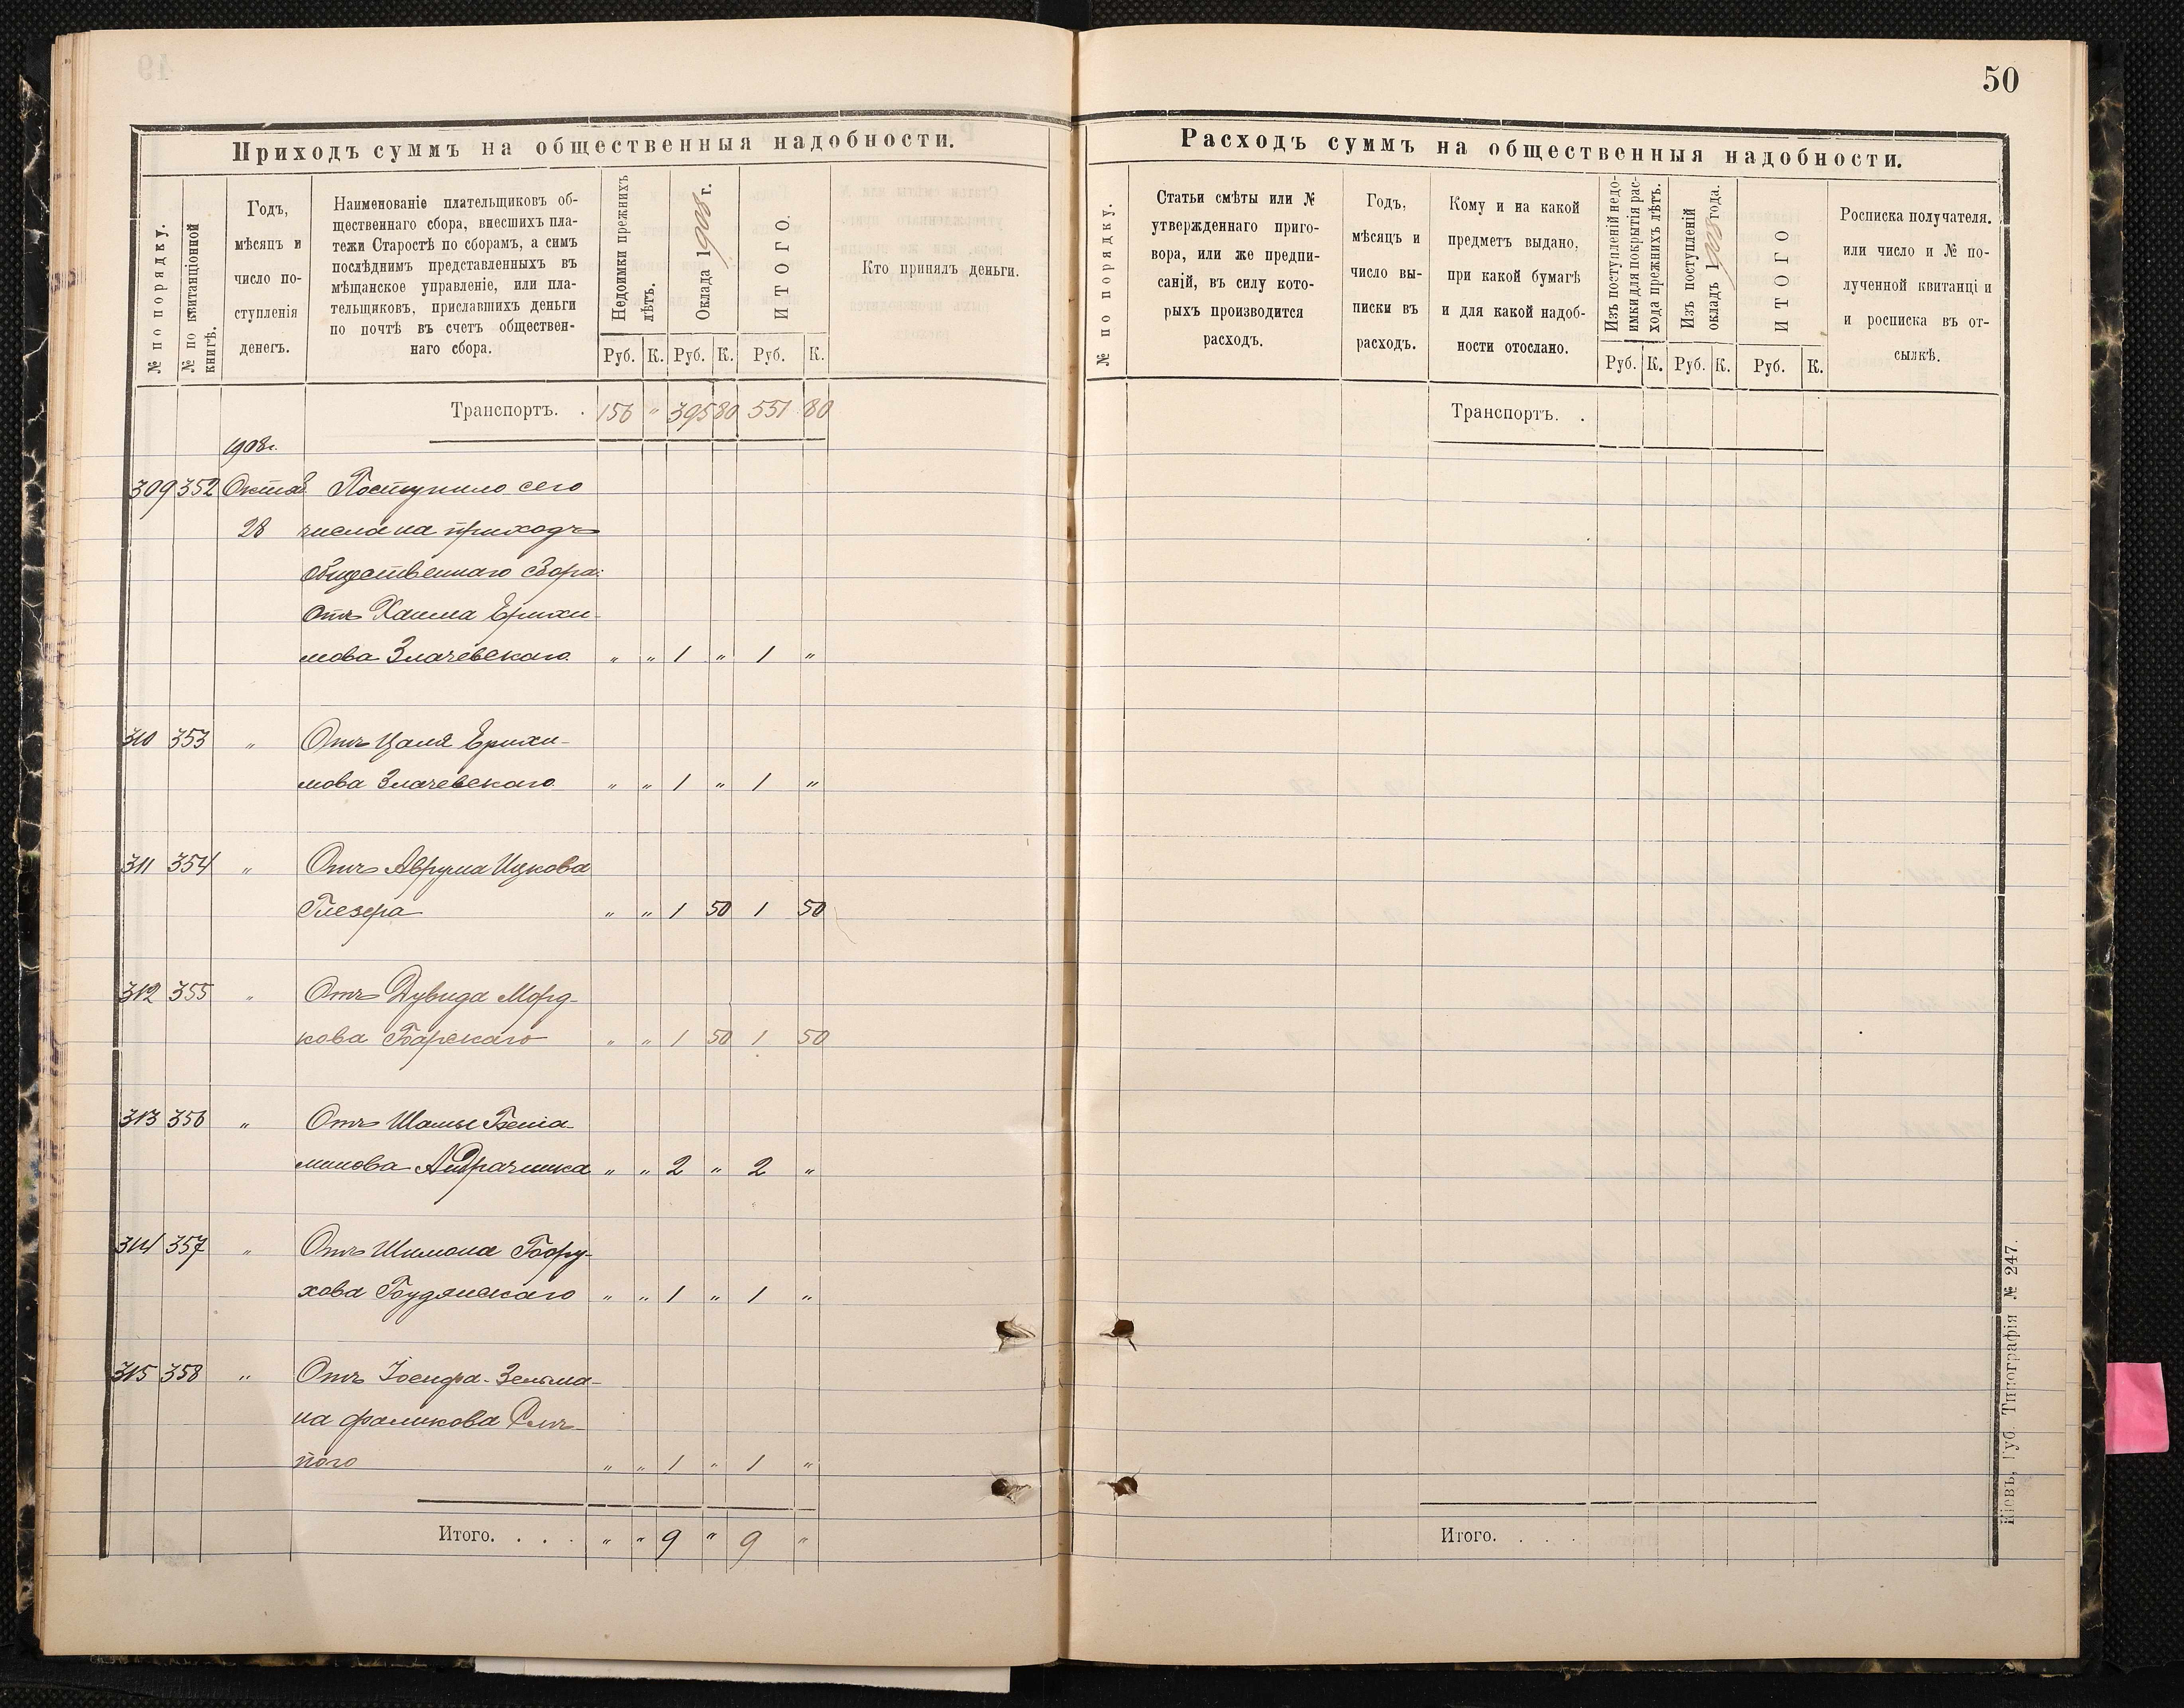 50
Приходъ суммъ на общественныя надобности.
№ по порядку.
№ по квитанціонной книгѣ.
Годъ,
мѣсяцъ и
число по-
ступленія
денегъ.
Наименованіе плательщиковъ об-
щественнаго сбора, внесшихъ пла-
тежи Старостѣ по сборамъ, а симъ
послѣднимъ представленныхъ въ
мѣщанское управленіе, или пла-
тельщиковъ, приславшихъ деньги
по почтѣ въ счетъ обществен-
наго сбора.
Недоимки прежнихъ
лѣтъ.
Оклада 1908 г.
ИТОГО.
Кто принялъ деньги.
Руб. К. Руб. К. Руб. К.
Транспортъ. . 156 " 395 80 551 80
1908г.
309 352 Октяб. Поступило сего
28 числа на приходъ
общественнаго сбора:
отъ Хаима Ерухи-
мова Злачевскаго " " 1 " 1 "
310 353 " Отъ Цаля Ерухи-
мова Злачевскаго " " 1 " 1 "
311 354 " Отъ Аврума Ицкова
Глезера " " 1 50 1 50
312 355 " Отъ Дувида Морд-
кова Барскаго " " 1 50 1 50
313 356 " Отъ Шамы Беніа-
минова " " 2 " 2 "
314 357 " Отъ Шимона Бору-
хова Будянскаго " " 1 " 1 "
315 358 " Отъ Іосифа-Зельма-
на Фаликова Слѣ-
пого " " 1 " 1 "
Итого. . . . " " 9 " 9 "
Расходъ суммъ на общественныя надобности.
№ по порядку.
Статьи смѣты или №
утвержденнаго приго-
вора, или же предпи-
саній, въ силу кото-
рыхъ производится
расходъ.
Годъ,
мѣсяцъ и
число вы-
писки въ
расходъ.
Кому и на какой
предметъ выдано,
при какой бумагѣ
и для какой надоб-
ности отослано.
Изъ поступленій недо-
имки для покрытія рас-
хода прежнихъ лѣтъ.
Изъ поступленій
окладъ 1908 года.
ИТОГО
Росписка получателя.
или число и № по-
лученной квитанці и
и росписка въ от-
сылкѣ.
Руб. К. Руб. К. Руб. К.
Транспортъ. .
Итого. . . .
Кіевъ, Губ. Типографія № 247.